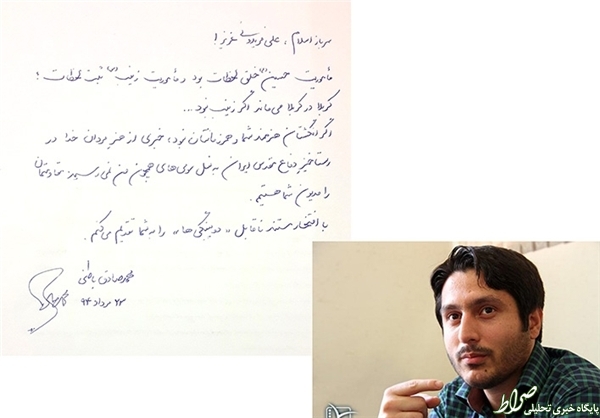 سرباز اسلام، علی فریدونی عزیز!
مأموریت حسین(ع) خلق لحظات بود و مأموریت زینب(س) ثبت لحظات؛
کربلا در کربلا می‌ماند اگر زینب نبود...
اگر انگشتان هنرمند شما و همرزمانتان نبود، خبری از هنر مردان خدا در
رستاخیز دفاع مقدس ایران به نسل سومی‌های همچون من نمی‌رسید؛ تماماً
را مدیون شما هستیم.
با افتخار مستند ناقابل « دلبستگی‌ها» را به شما تقدیم می‌کنم.
محمدصادق باطنی
۲۲ مرداد ۹۴
صراط
پایگاه خبری تحلیلی